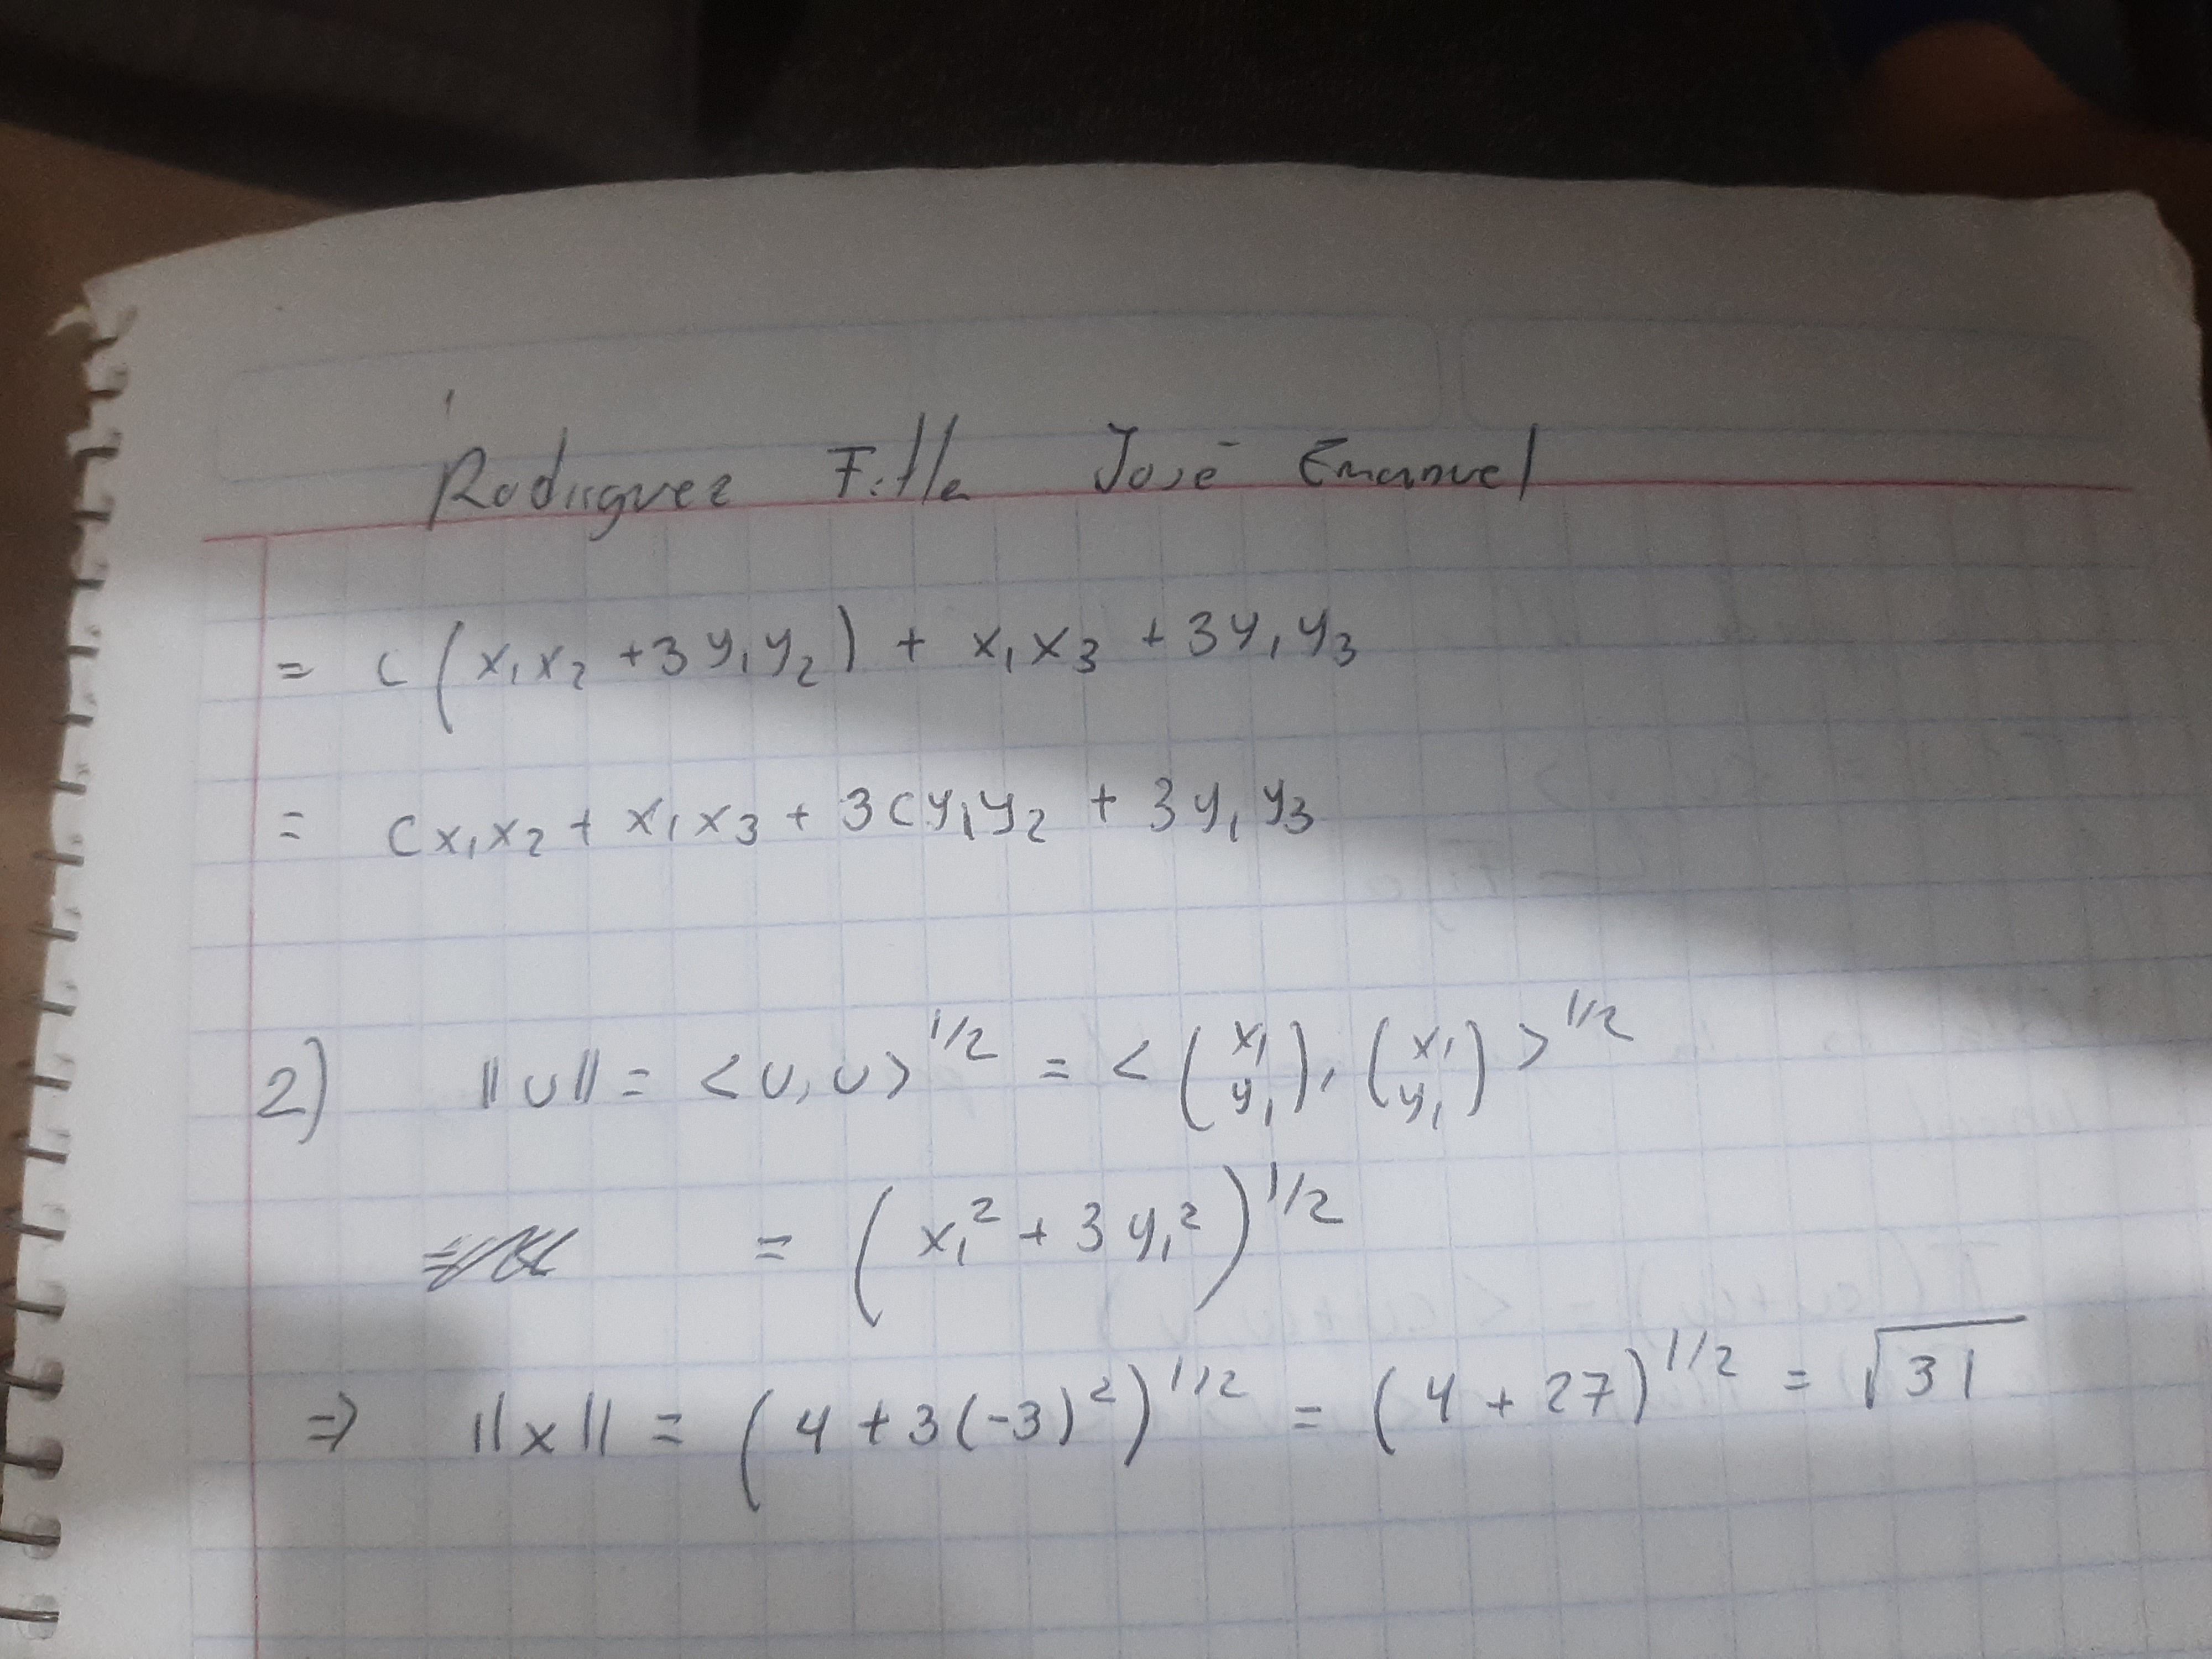 Rodriguez Fitta José Emanuel
= c(x₁x₂ + 3y₁y₂) + x₁x₃ + 3y₁y₃
= cx₁x₂ + x₁x₃ + 3cy₁y₂ + 3y₁y₃
2) ||u|| = <u,u>^1/2 = <(x₁ y₁), (x₁ y₁)>^1/2
= (x₁² + 3y₁²)^1/2
⇒ ||x|| = (4 + 3(-3)²)^1/2 = (4 + 27)^1/2 = √31